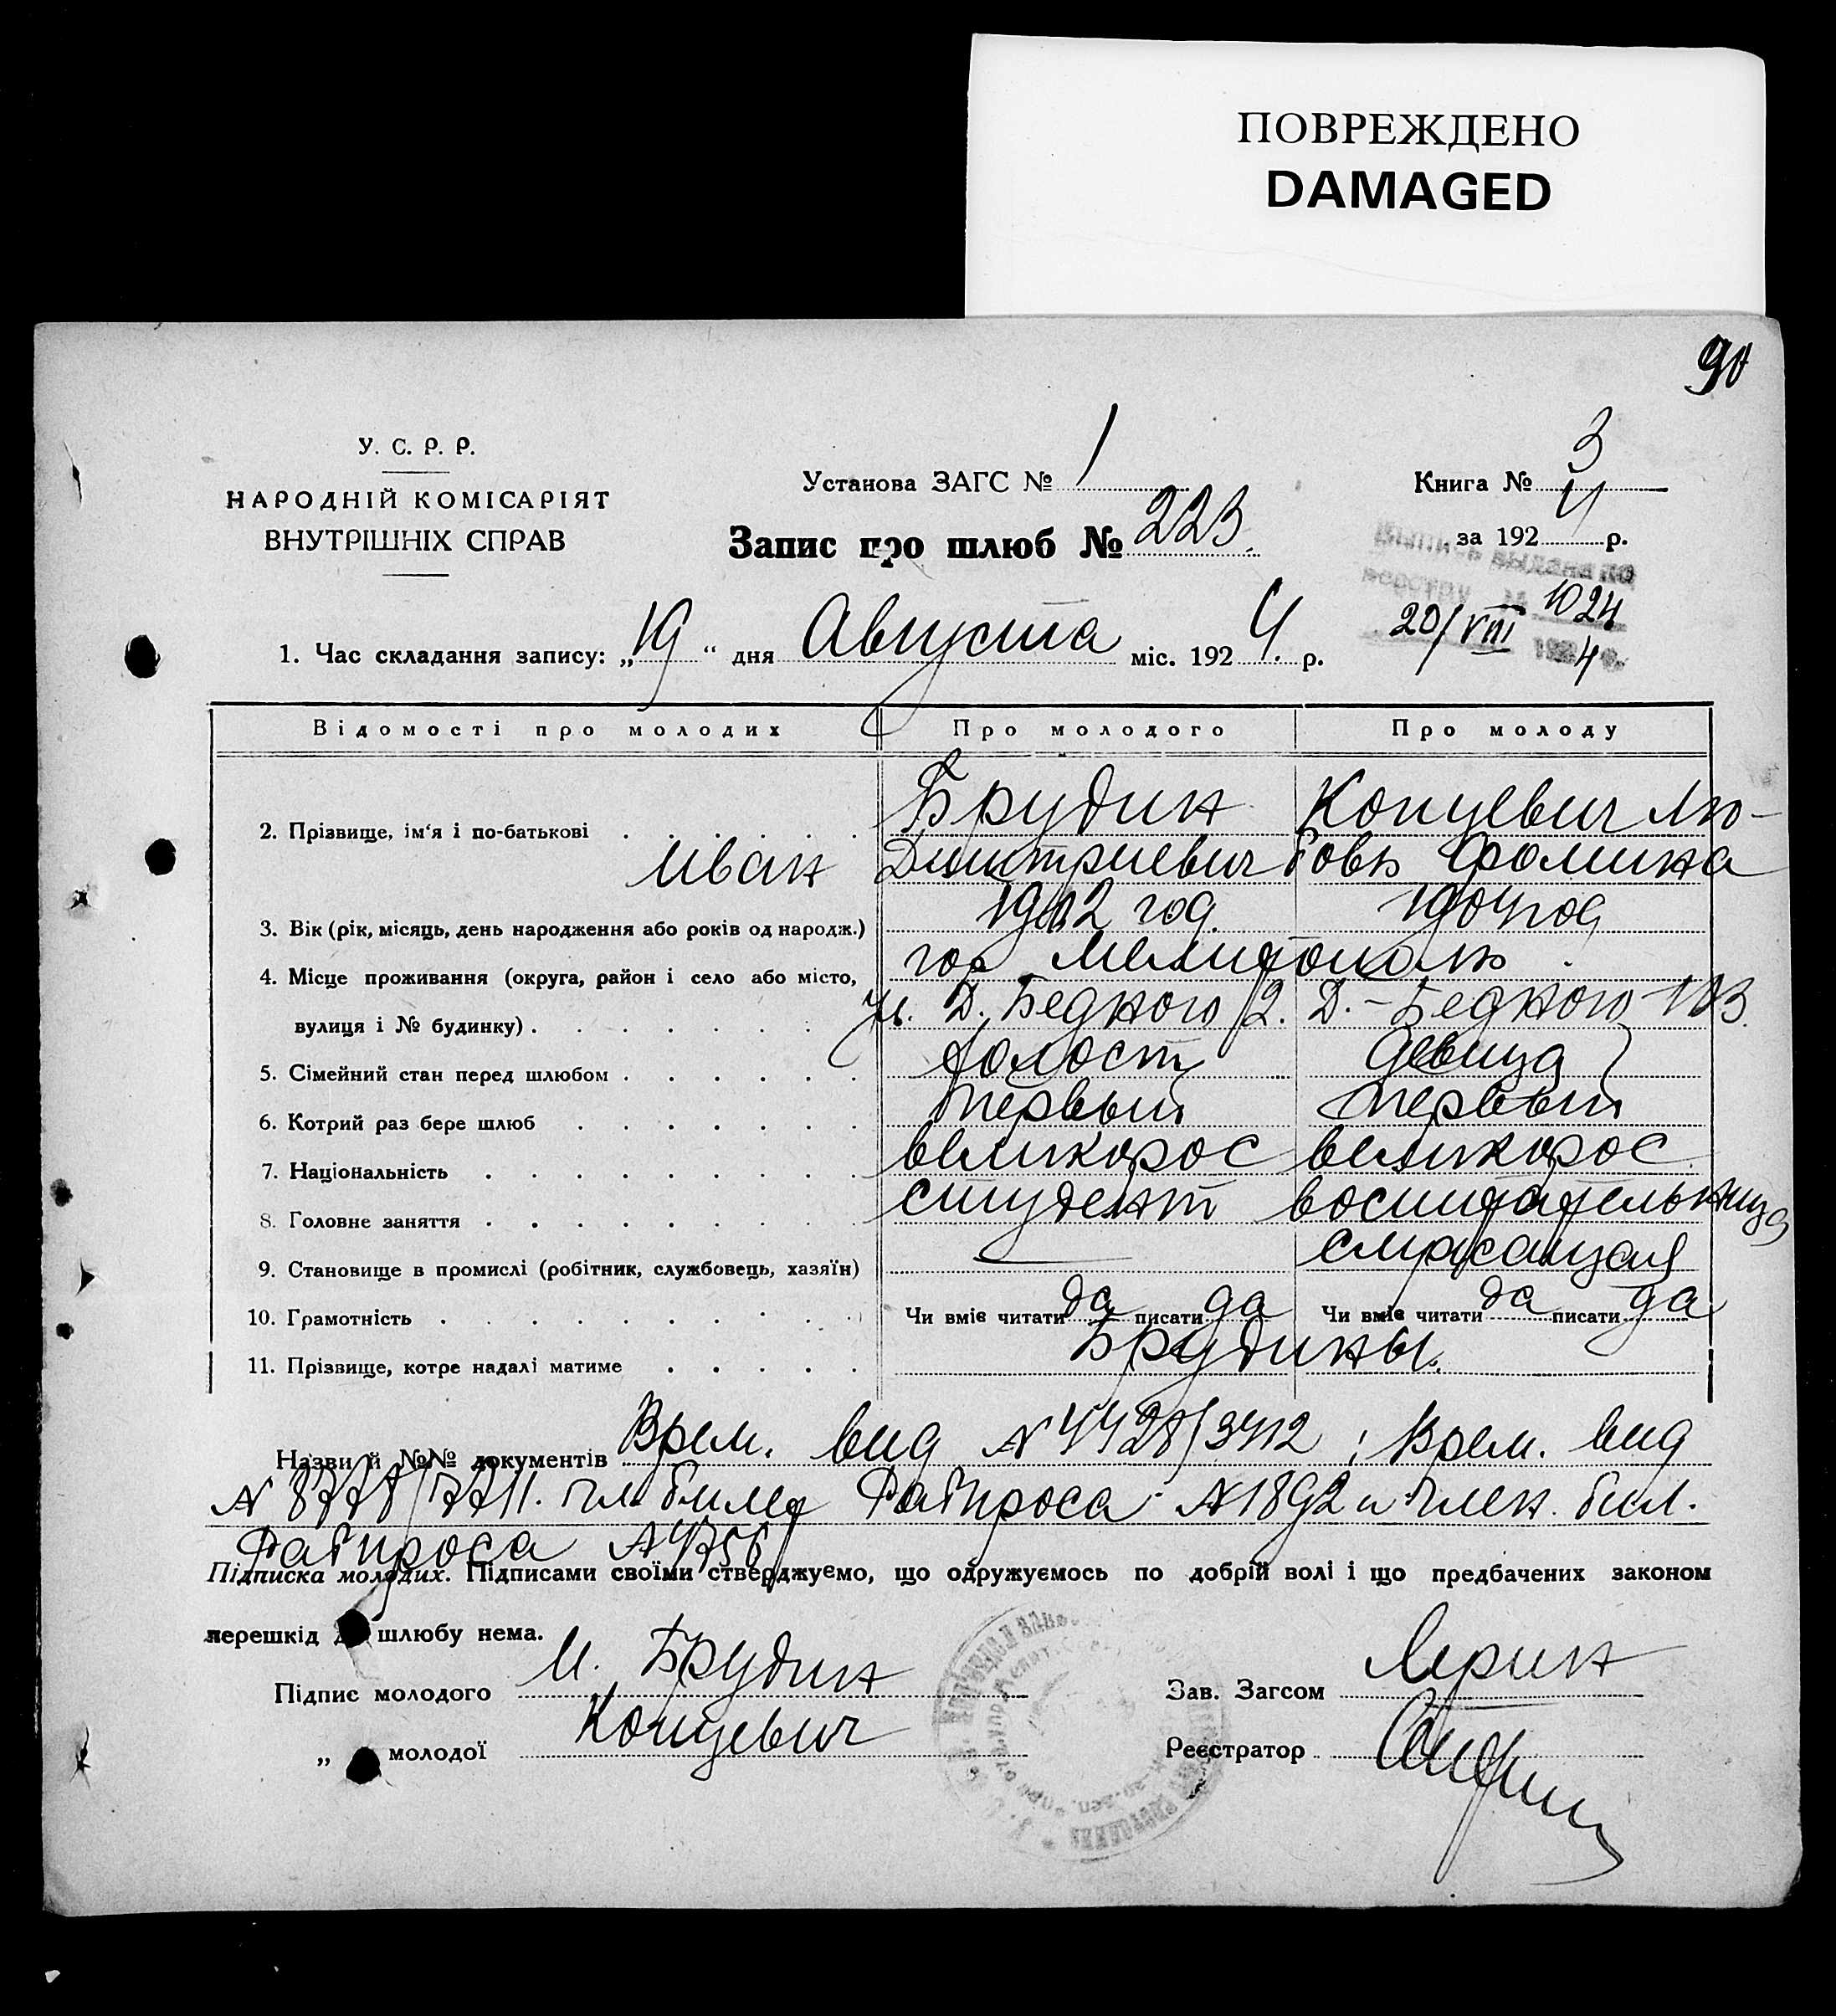 ПОВРЕЖДЕНО
DAMAGED
90
У. С. Р. Р.
НАРОДНІЙ КОМІСАРІЯТ
ВНУТРІШНІХ СПРАВ
Установа ЗАГС № 1
Книга № 3
Запис про шлюб № 223.
за 1924 р.
1. Час складання запису: „19“ дня Августа міс. 1924. р.
20/VIII 1024
4
Відомості про молодих Про молодого Про молоду
2. Прізвище, ім'я і по-батькові Брудин Концевич Лю-
Иван Димитриевич бовь Фомина
3. Вік (рік, місяць, день народження або років од народж.) 1902 год. 1904 год
4. Місце проживання (округа, район і село або місто, гор Мелитополь
вулиця і № будинку) Ул. Д. Бедного 2. Д.-Бедного 103.
5. Сімейний стан перед шлюбом холост девица
6. Котрий раз бере шлюб первый первый
7. Національність великорос великорос
8. Головне заняття студент воспитательница
9. Становище в промислі (робітник, службовець, хазяїн) —
10. Грамотність Чи вміє читати да писати да Чи вміє читати да писати да
11. Прізвище, котре надалі матиме Брудины.
Назви й №№ документів Врем. вид N 4428/3412; Врем. вид
N 8778/7711. чл билет Рабпроса N 1892 и член. бил.
Рабпроса N 4756
Підписка молодих. Підписами своїми стверджуємо, що одружуємось по добрій волі і що предбачених законом
перешкід шлюбу нема.
Підпис молодого И. Брудин
Зав. Загсом
„ молодої Концевич
Реєстратор